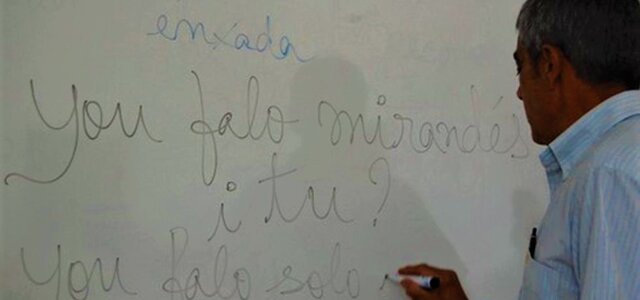 enxada
You falo mirandés
i tu?
You falo solo